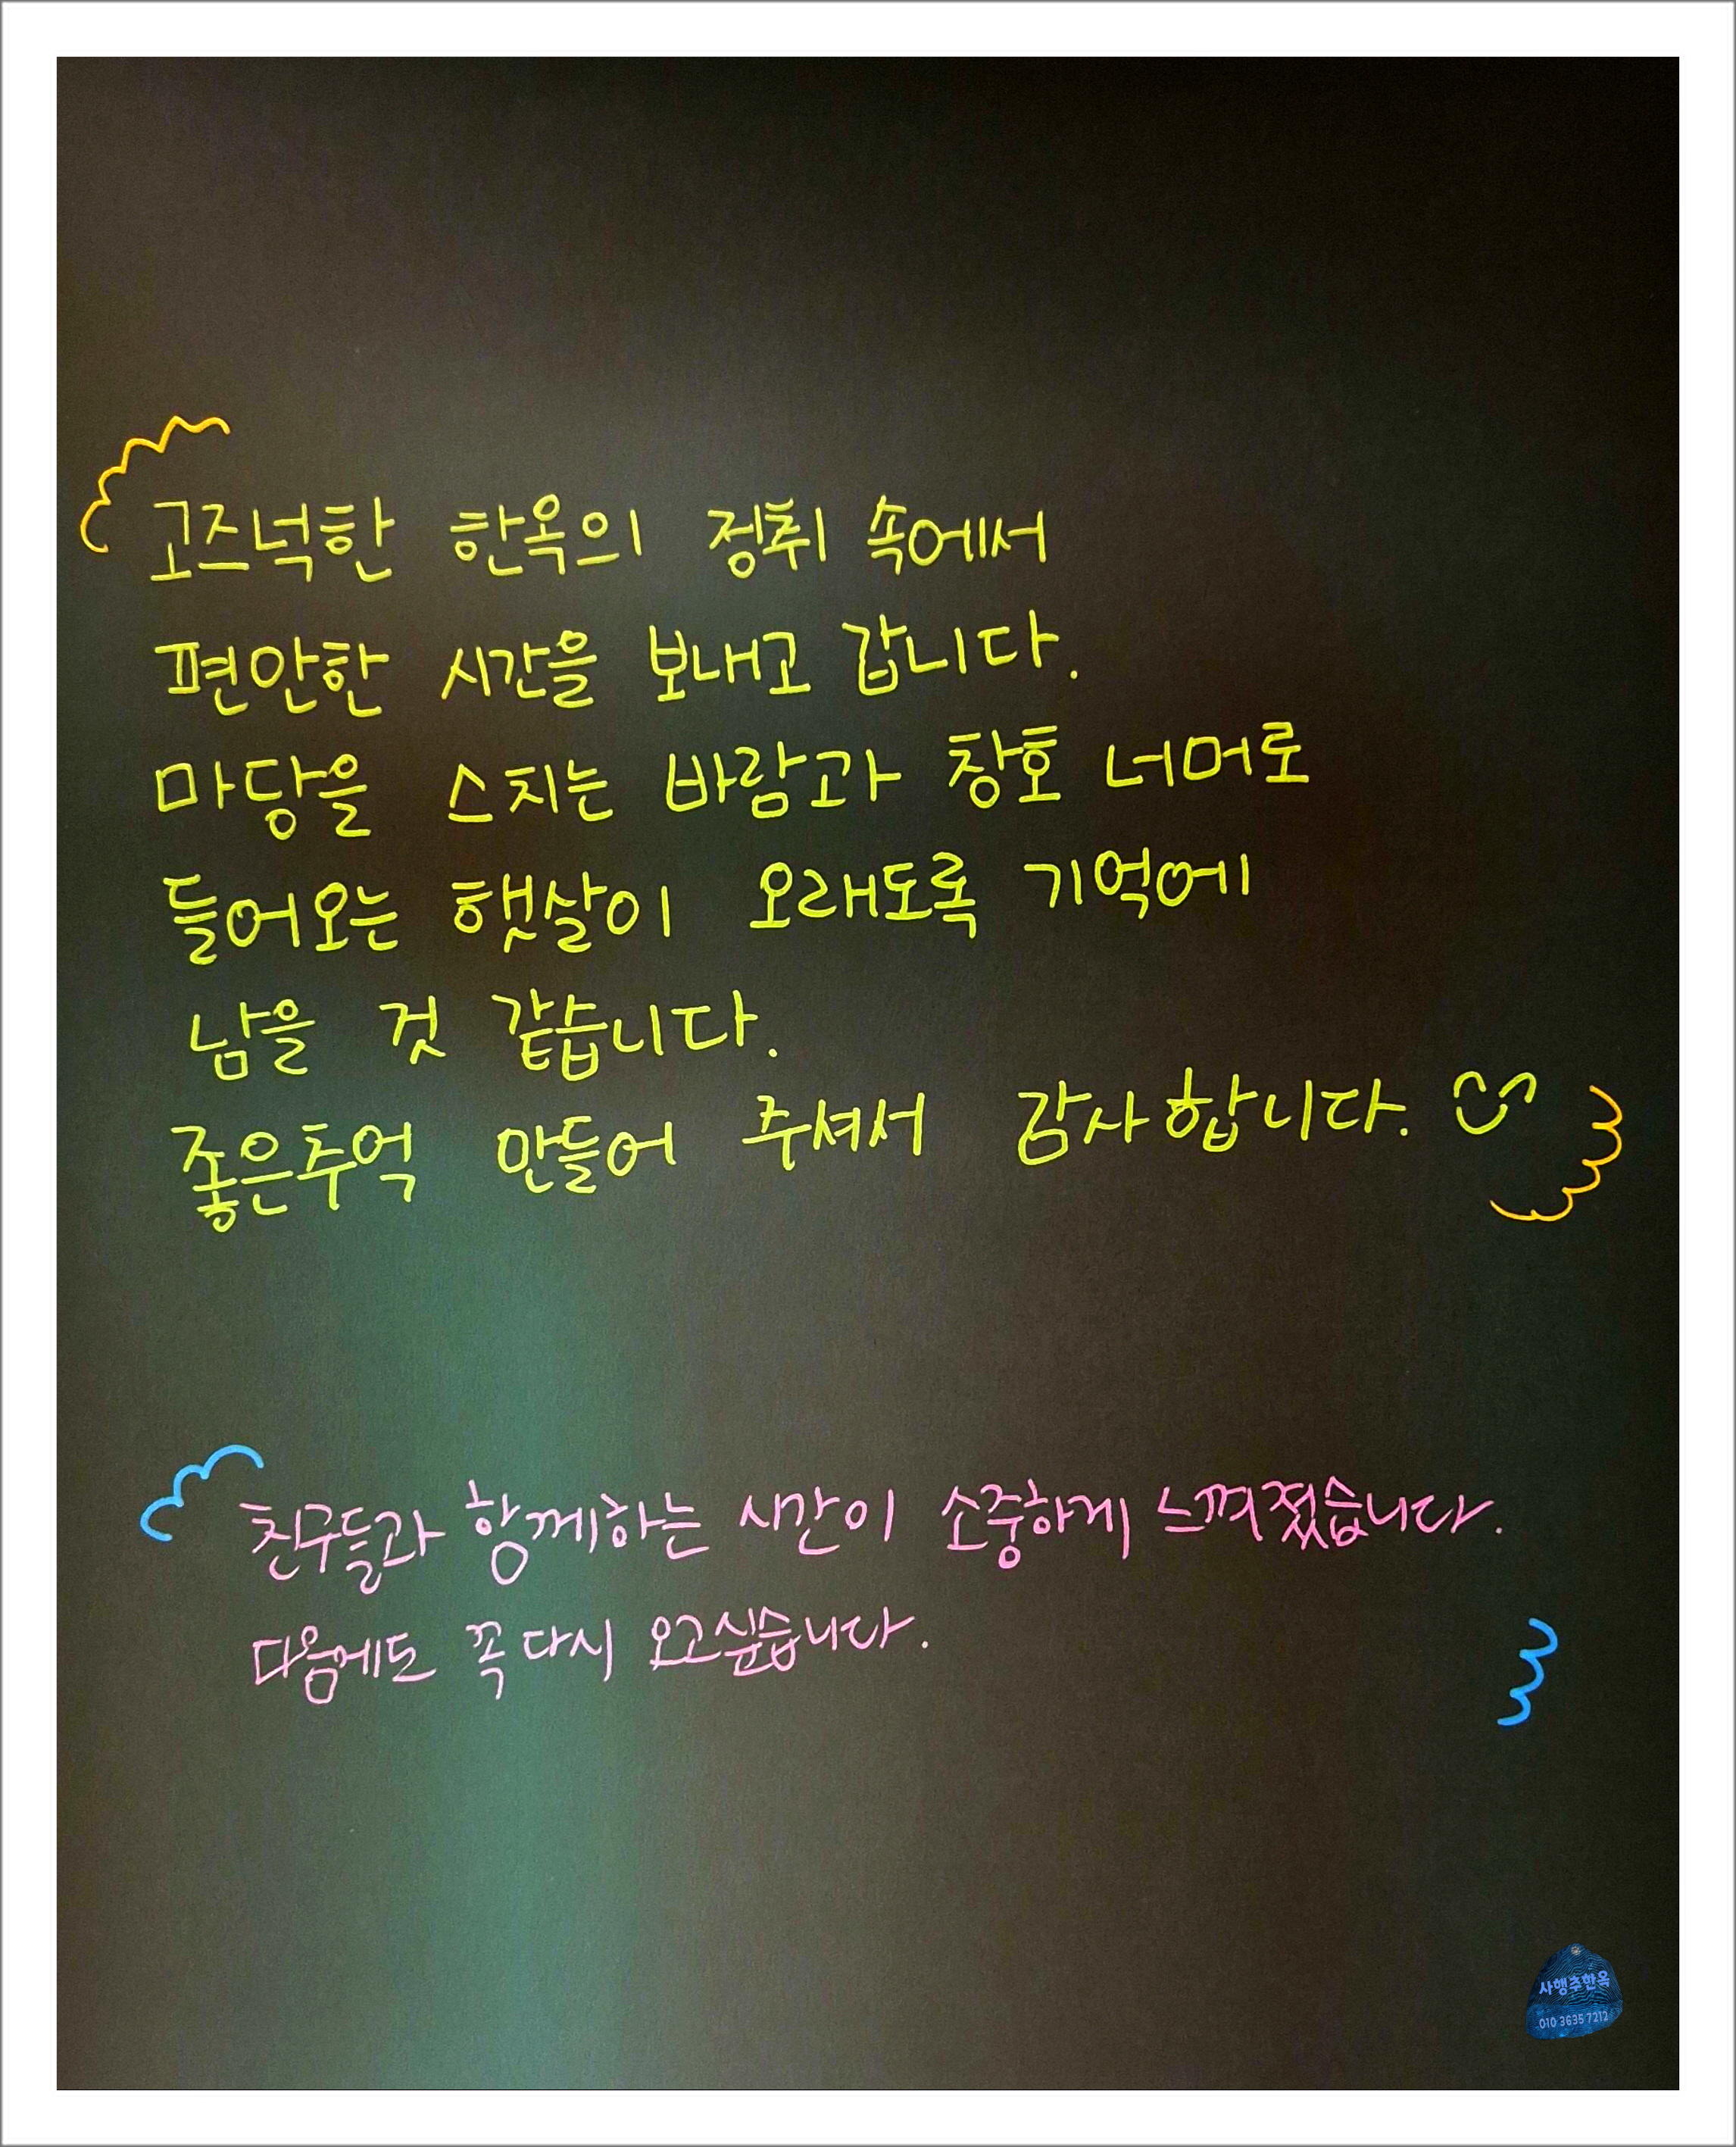 고즈넉한 한옥의 정취 속에서
편안한 시간을 보내고 갑니다.
마당을 스치는 바람과 창호 너머로
들어오는 햇살이 오래도록 기억에
남을 것 같습니다.
좋은추억 만들어 주셔서 감사합니다.
친구들과 함께하는 시간이 소중하게 느껴졌습니다.
다음에도 꼭 다시 오고싶습니다.
사행추한옥
010 3635 7212